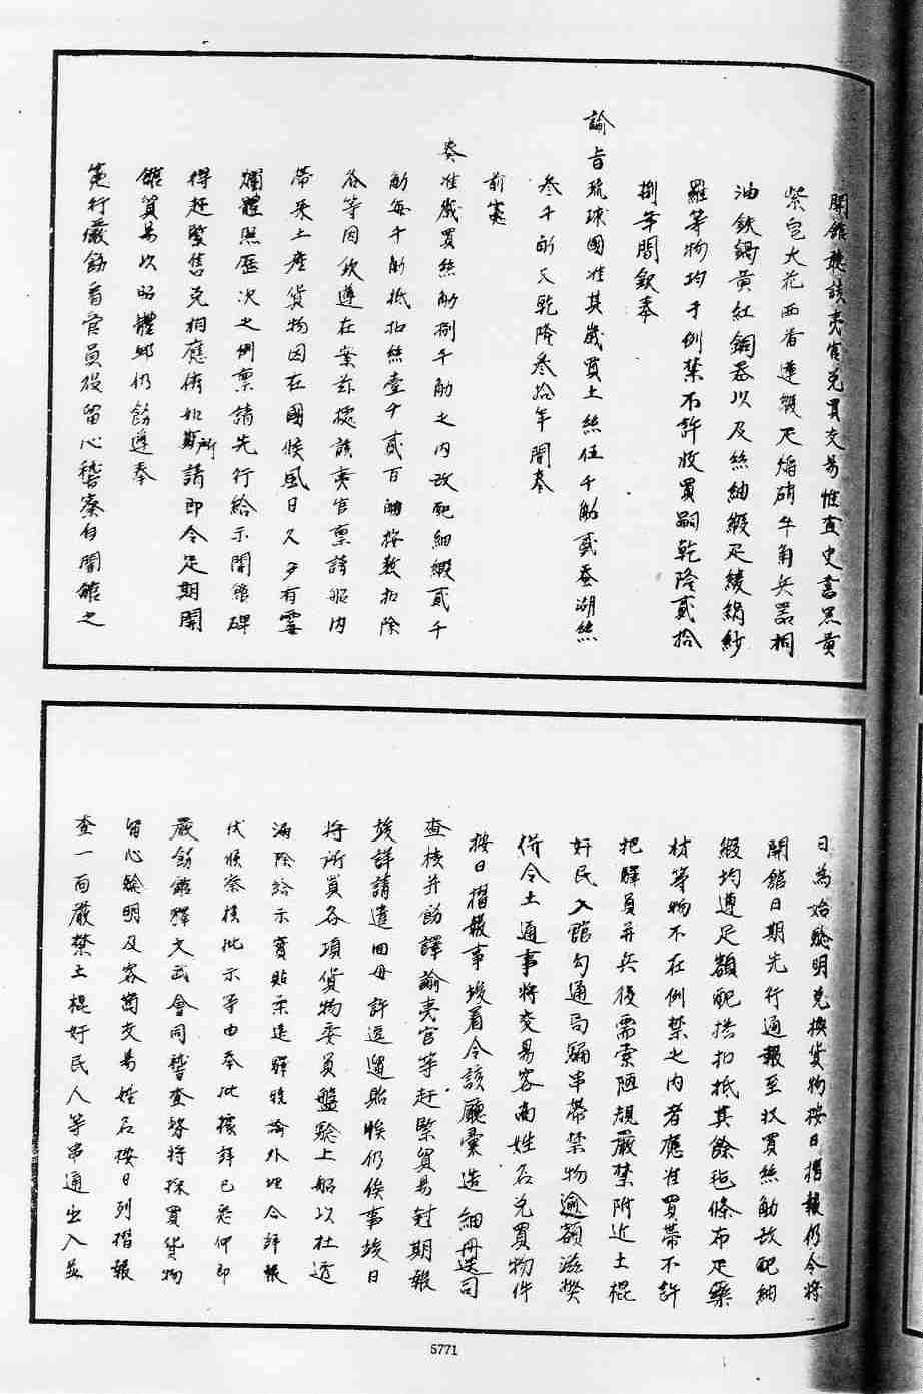 開館聽該夷官兌買交易惟查史書黑黃
紫皂大花西番蓮緞疋焰硝牛角兵器桐
油鉄鍋黃紅銅器以及絲紬緞疋綾絹紗
羅等物均干例禁不許收買嗣乾隆貳拾
捌年間欽奉
諭旨琉球國准其歲買土絲伍千觔貳蚕湖絲
叁千觔又乾隆叁拾年間奉
前憲
奏准歲買絲觔捌千觔之内改配紬緞貳千
觔每千觔抵扣絲壹千貳百觔按數扣除
各等因欽遵在案茲據該夷官稟請船内
帶來土產貨物因在國候風日久多有霉
爛體照歷次之例稟請先行給示開館俾
得赶緊售兌相應俯如所請即令定期開
館貿易以昭體卹仍飭遵奉
憲行嚴飭看官員役留心稽察自開館之
日為始驗明兌換貨物按日摺報仍令將
開館日期先行通報至收買絲觔改配紬
緞均遵定額配搭扣抵其餘毡條布疋藥
材等物不在例禁之内者應准買帶不許
把驛員弁兵後需索陋規嚴禁附近土棍
奸民入館勾通局騙串帶禁物逾額滋獘
併令土通事將交易客商姓名兌買物件
按日摺報事竣着令該廳彙造細冊送司
查核并飭譯諭夷官等赶緊貿易剋期報
竣詳請遣回毋許逗遛貽悞仍俟事竣日
將所買各項貨物委員盤驗上船以杜透
漏除給示實貼柔遠驛曉諭外理合詳報
伏候察核批示等由奉批據詳已悉仰即
嚴飭館驛文武會同稽查務將採買貨物
留心驗明及客商交易姓名按日列摺報
查一面嚴禁土棍奸民人等串通出入並
5771